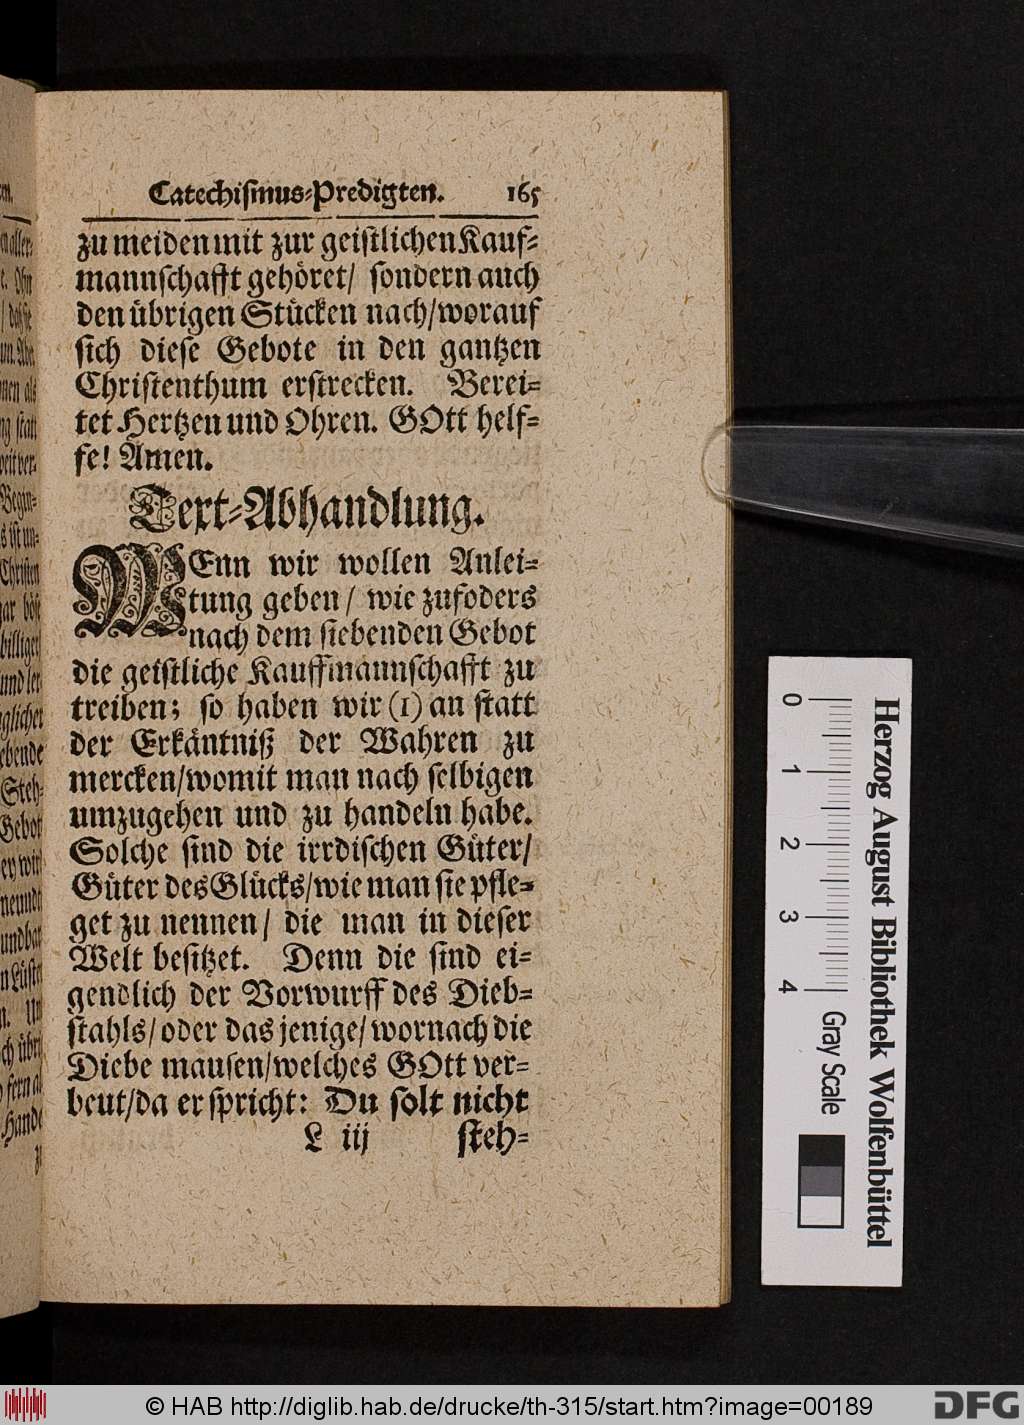 Catechiſmus-Predigten. 165
zu meiden mit zur geiſtlichen Kauf-
mannſchafft gehöret/ ſondern auch
den übrigen Stücken nach/worauf
ſich dieſe Gebote in den gantzen
Chriſtenthum erſtrecken. Berei-
tet Hertzen und Ohren. GOtt helf-
fe! Amen.
Text-Abhandlung.
WEnn wir wollen Anlei-
tung geben/ wie zufoders
nach dem ſiebenden Gebot
die geiſtliche Kauffmannſchafft zu
treiben; ſo haben wir (1) an ſtatt
der Erkäntniß der Wahren zu
mercken/womit man nach ſelbigen
umzugehen und zu handeln habe.
Solche ſind die irrdiſchen Güter/
Güter des Glücks/wie man ſie pfle-
get zu nennen/ die man in dieſer
Welt beſitzet. Denn die ſind ei-
gendlich der Vorwurff des Dieb-
ſtahls/oder das jenige/wornach die
Diebe mauſen/welches GOtt ver-
beut/da er ſpricht: Du ſolt nicht
L iij ſteh-
Herzog August Bibliothek Wolfenbüttel
0 1 2 3 4 Gray Scale
© HAB http://diglib.hab.de/drucke/th-315/start.htm?image=00189
DFG